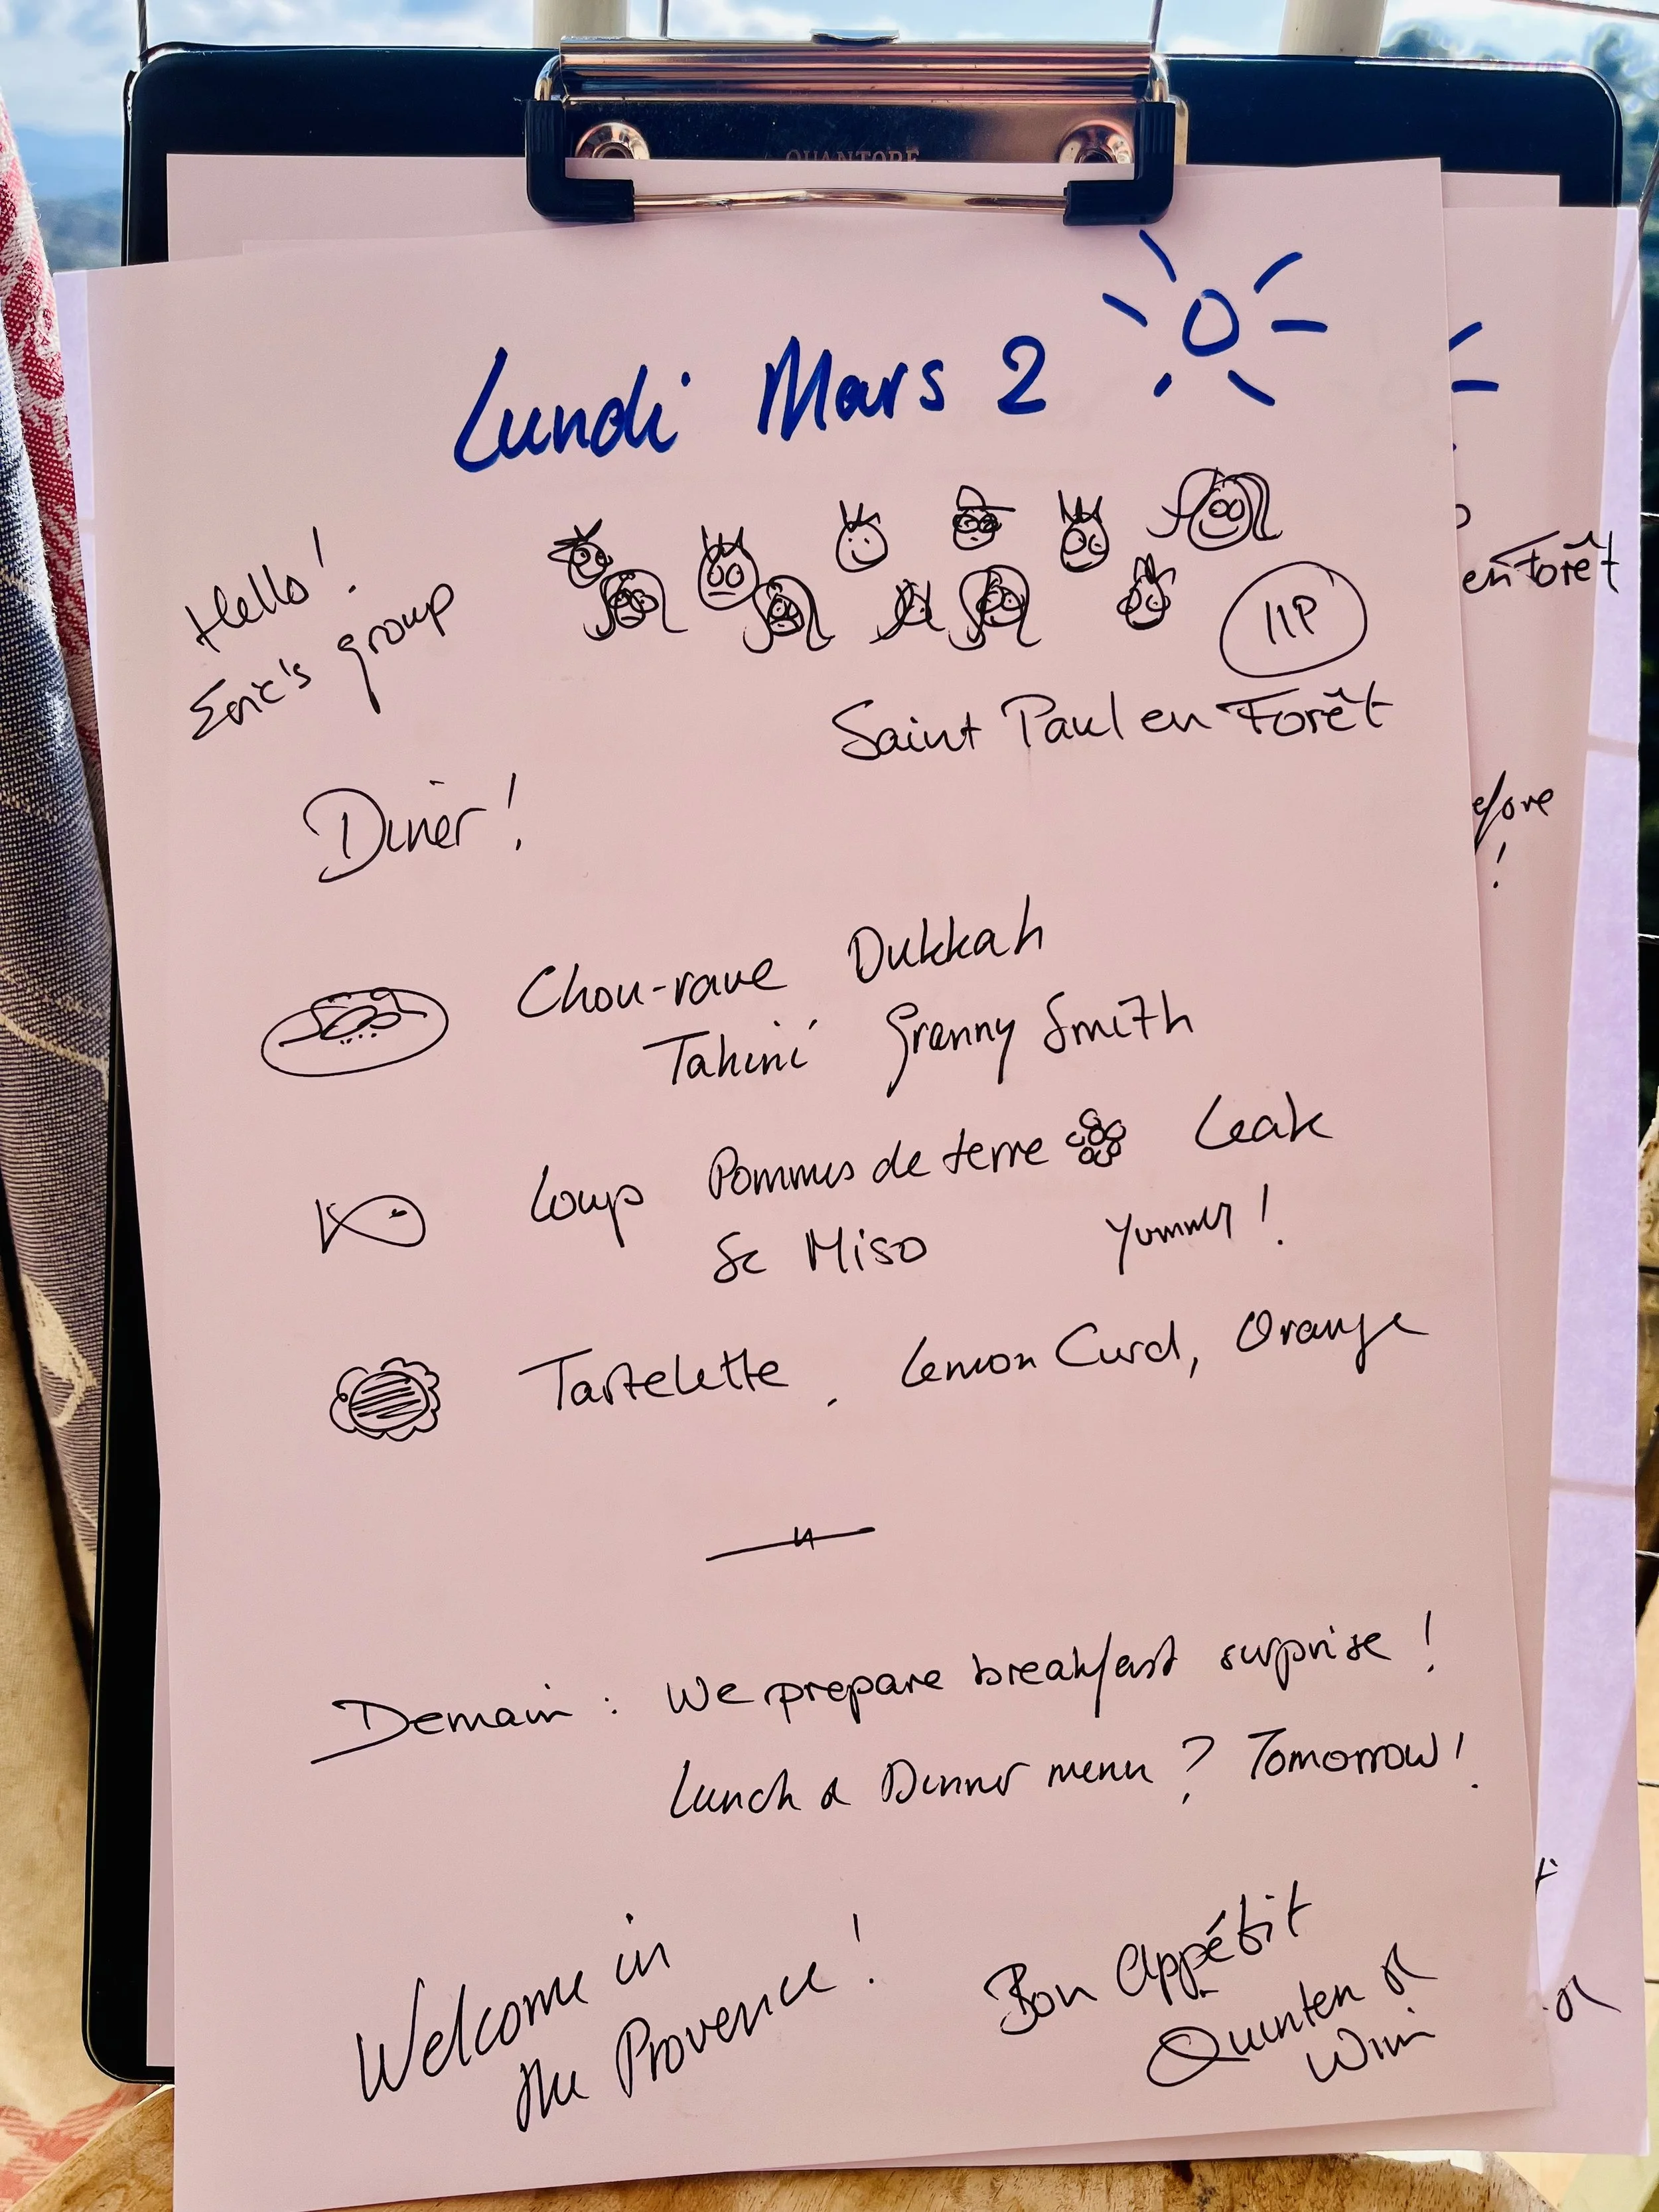 QUANTORE
Lundi Mars 2
Hello!
Eric's group
11P
Saint Paul en Forêt
Diner!
Chou-rave Dukkah
Tahini Granny Smith
Loup Pommes de terre Leak
& Miso Yummy!
Tartelette. Lemon Curd, Orange
Demain: We prepare breakfast surprise!
Lunch & Dinner menu? Tomorrow!
Welcome in
the Provence!
Bon Appétit
Quinten &
Wim
en Forêt
efore
!
&